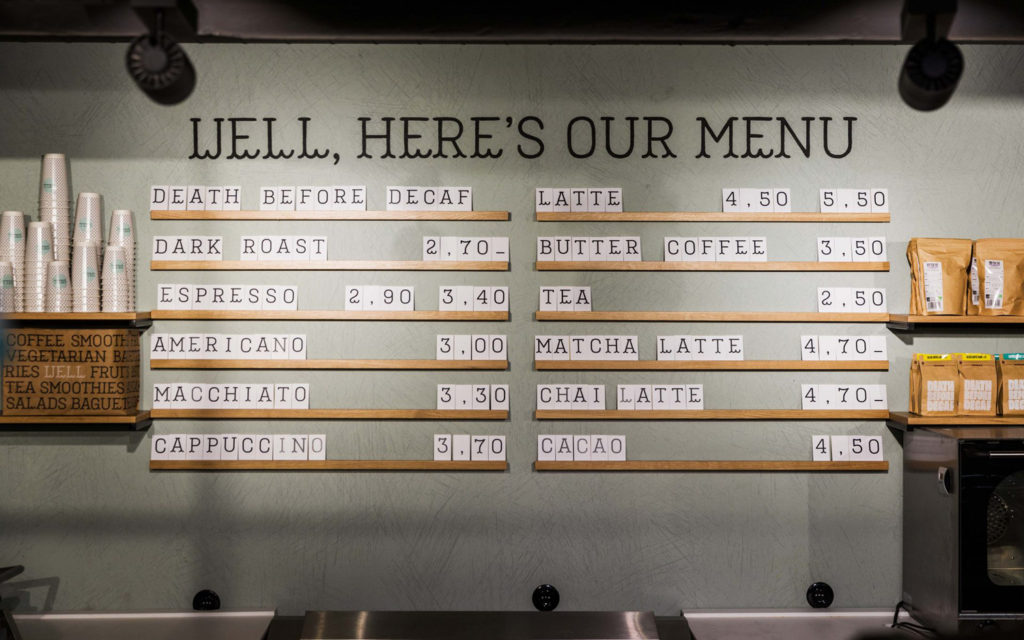 WELL, HERE'S OUR MENU
DEATH BEFORE DECAF
DARK ROAST 2,70_
ESPRESSO 2,90 3,40
AMERICANO 3,00
MACCHIATO 3,30
CAPPUCCINO 3,70
LATTE 4,50 5,50
BUTTER COFFEE 3,50
TEA 2,50
MATCHA LATTE 4,70_
CHAI LATTE 4,70_
CACAO 4,50
COFFEE SMOOTH
VEGETARIAN BA
RIES WELL FRUI
TEA SMOOTHIES
SALADS BAGUET
DEATH